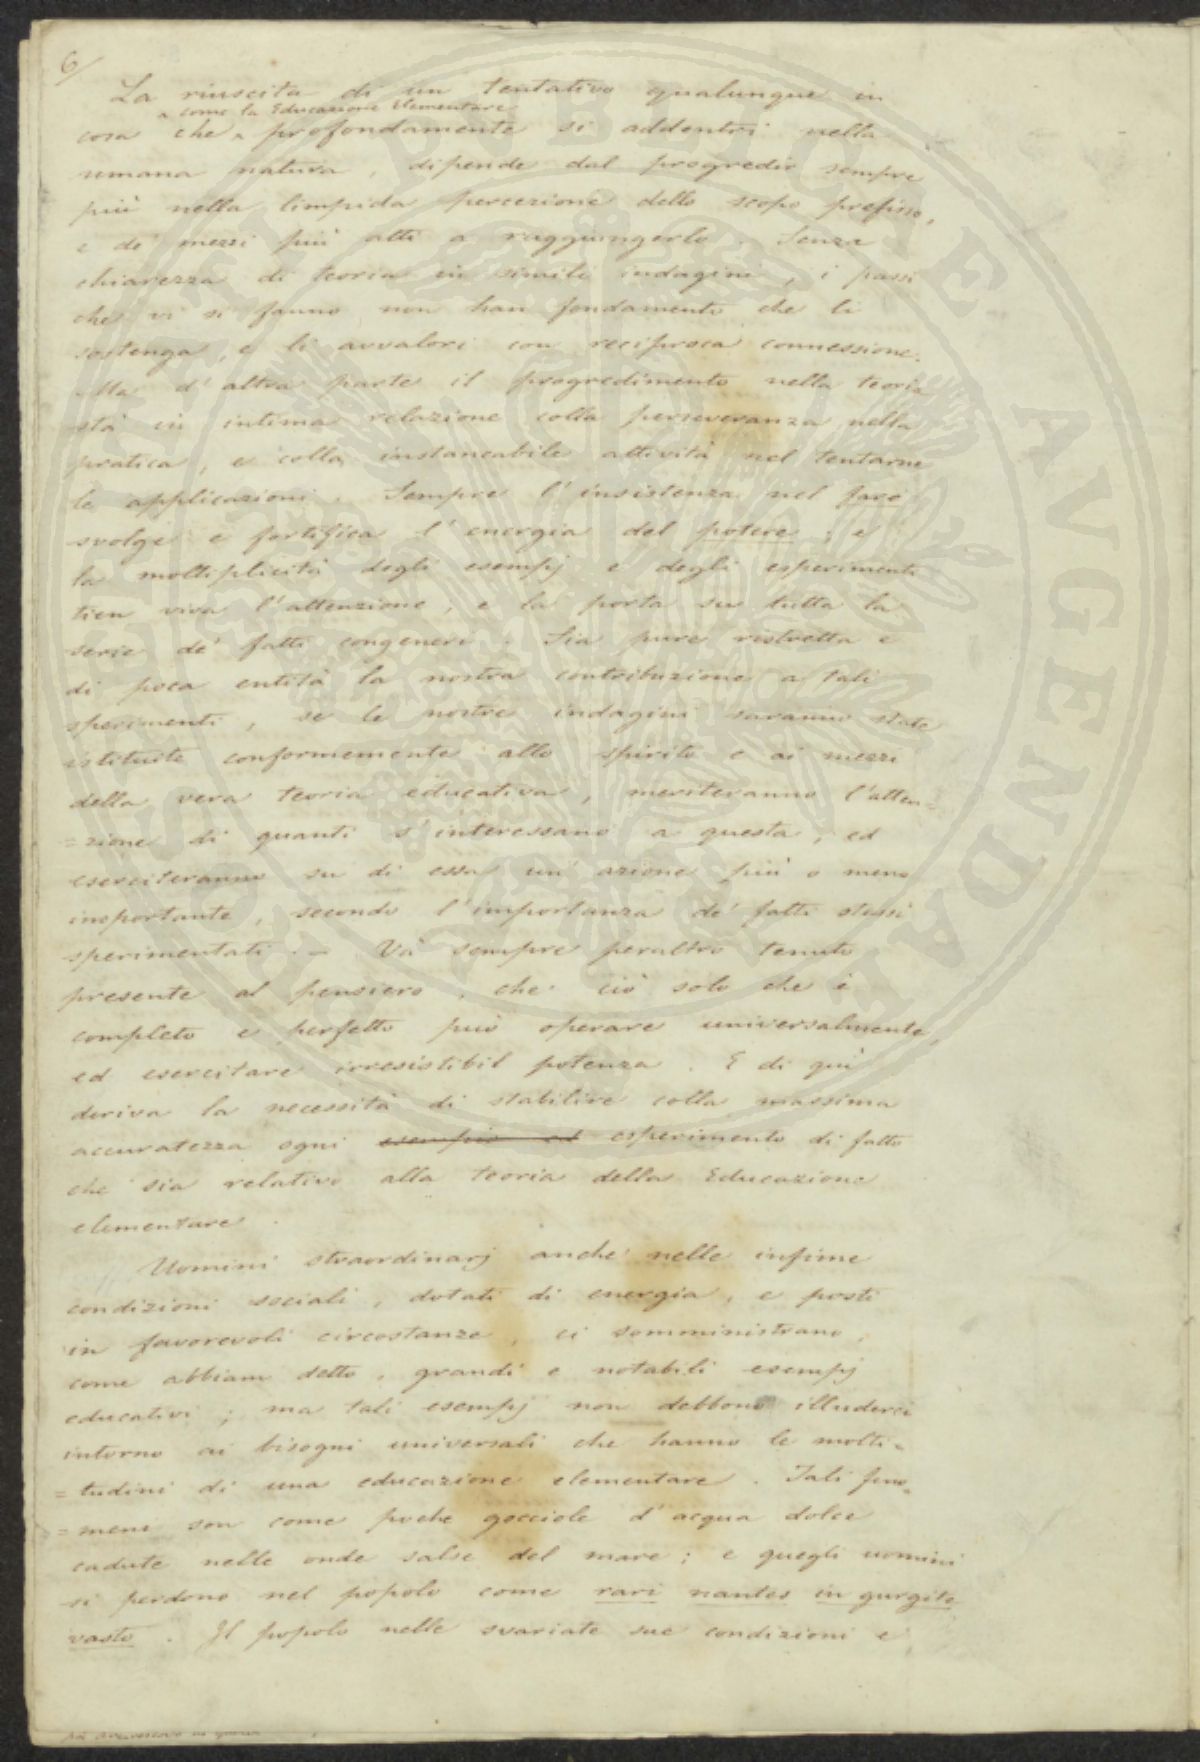 6/
La riuscita di un tentativo qualunque in
^ come la Educazione Elementare
cosa che ^ profondamente si addentri nella
umana natura, dipende dal progredir sempre
più nella limpida percezione dello scopo prefisso,
e de' mezzi più atti a raggiungerlo. Senza
chiarezza di teoria in simili indagini, i passi
che vi si fanno non han fondamento che li
sostenga, e li avvalori con reciproca connessione.
Ma d'altra parte il progredimento nella teoria
stà in intima relazione colla perseveranza nella
pratica, e colla instancabile attività nel tentarne
le applicazioni. Sempre l'insistenza nel fare
svolge e fortifica l'energia del potere; e
la moltiplicità degli esempj e degli esperimenti
tien viva l'attenzione, e la porta su tutta la
serie de' fatti congeneri. Sia pure ristretta e
di poca entità la nostra contribuzione a tali
sperimenti, se le nostre indagini saranno state
istituite conformemente allo spirito e ai mezzi
della vera teoria educativa, meriteranno l'atten=
=zione di quanti s'interessano a questa, ed
eserciteranno su di essa un'azione più o meno
importante, secondo l'importanza de' fatti stessi
sperimentati. – Và sempre peraltro tenuto
presente al pensiero, che ciò solo che è
completo e perfetto può operare universalmente,
ed esercitare irresistibil potenza. E di quì
deriva la necessità di stabilire colla massima
accuratezza ogni esempio ed esperimento di fatto
che sia relativo alla teoria della Educazione
elementare.
Uomini straordinarj anche nelle infime
condizioni sociali, dotati di energia, e posti
in favorevoli circostanze, ci somministrano,
come abbiam detto, grandi e notabili esempj
educativi; ma tali esempj non debbono illuderci
intorno ai bisogni universali che hanno le molti=
=tudini di una educazione elementare. Tali feno=
=meni son come poche gocciole d'acqua dolce
cadute nelle onde salse del mare; e quegli uomini
si perdono nel popolo come rari nantes in gurgite
vasto. Il popolo nelle svariate sue condizioni e
POSTERITATI PUBLICAE AUGENDAE